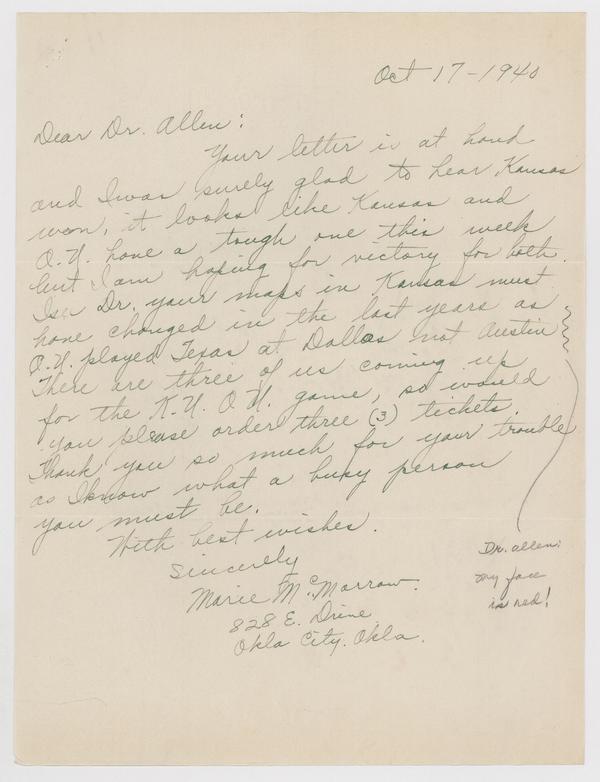 Oct 17-1940
Dear Dr. Allen:
Your letter is at hand
and I was surely glad to hear Kansas
won, it looks like Kansas and
O.U. have a tough one this week
but I am hoping for victory for both.
Dr. your maps in Kansas must
have changed in the last years as
O.U. played Texas at Dallas not Austin
There are three of us coming up
for the K.U. O.U. game, so would
you please order three (3) tickets.
Thank you so much for your trouble
as I know what a busy person
you must be.
With best wishes.
Sincerely
Marie McMorrow.
828 E. Drive
Okla City. Okla.
Dr. Allen:
my face
is red!